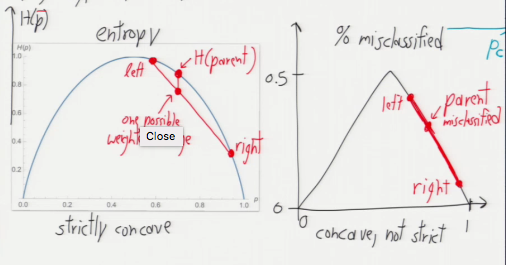 H(p)
entropy
H(p)
1.0
0.8
0.6
0.4
0.2
0.0 0.2 0.4 0.6 0.8 1.0 p
left
H(parent)
one possible
Close
right
strictly concave
% misclassified
0.5
0
0
1
left
parent
misclassified
right
concave, not strict